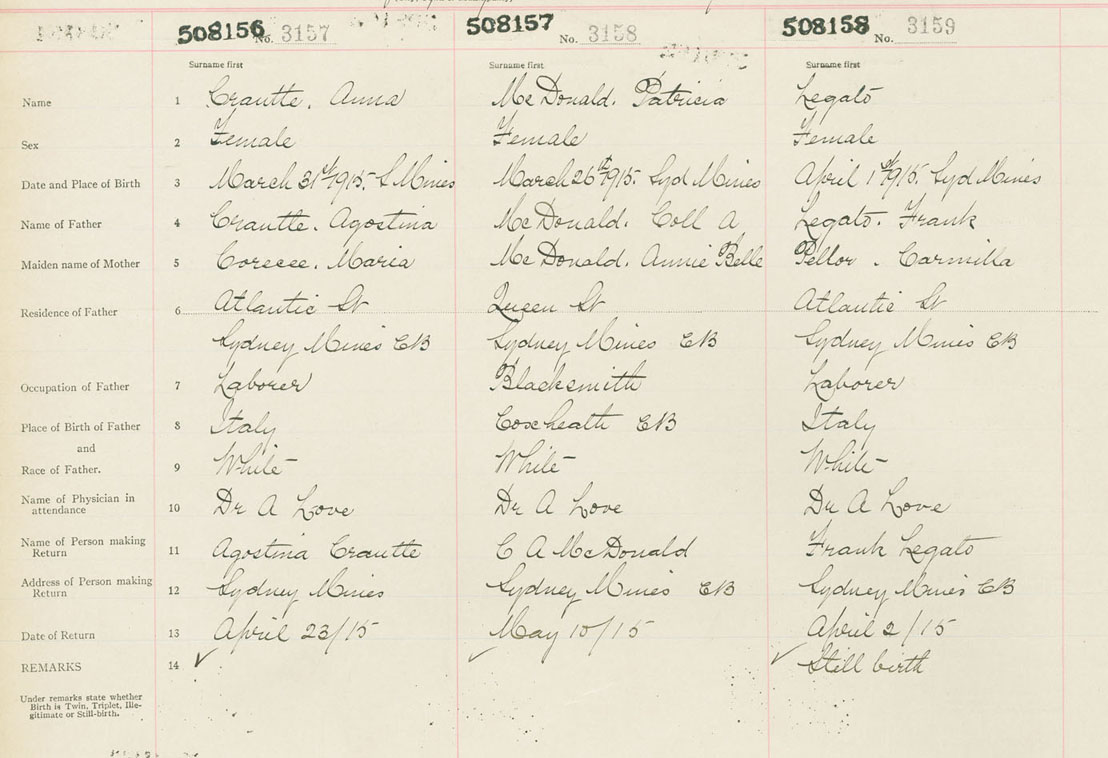 508156 No. 3157 508157 No. 3158 508158 No. 3159
Surname first Surname first Surname first
Name 1 Crautte. Anna McDonald. Patricia Legato
Sex 2 Female Female Female
Date and Place of Birth 3 March 31st 1915. S. Mines March 26th 1915. Syd Mines April 1st 1915. Syd Mines
Name of Father 4 Crautte. Agostina McDonald. Coll A Legato. Frank
Maiden name of Mother 5 Maria McDonald. Annie Belle Carmilla
Residence of Father 6 Atlantic St Queen St Atlantic St
Sydney Mines CB Sydney Mines CB Sydney Mines CB
Occupation of Father 7 Laborer Blacksmith Laborer
Place of Birth of Father 8 Italy Coxheath CB Italy
and
Race of Father. 9 White White White
Name of Physician in
attendance 10 Dr A Love Dr A Love Dr A Love
Name of Person making
Return 11 Agostina Crautte C A McDonald Frank Legato
Address of Person making
Return 12 Sydney Mines Sydney Mines CB Sydney Mines CB
Date of Return 13 April 23/15 May 10/15 April 2/15
REMARKS 14 ✓ ✓ ✓ Still birth
Under remarks state whether
Birth is Twin, Triplet, Ille-
gitimate or Still-birth.